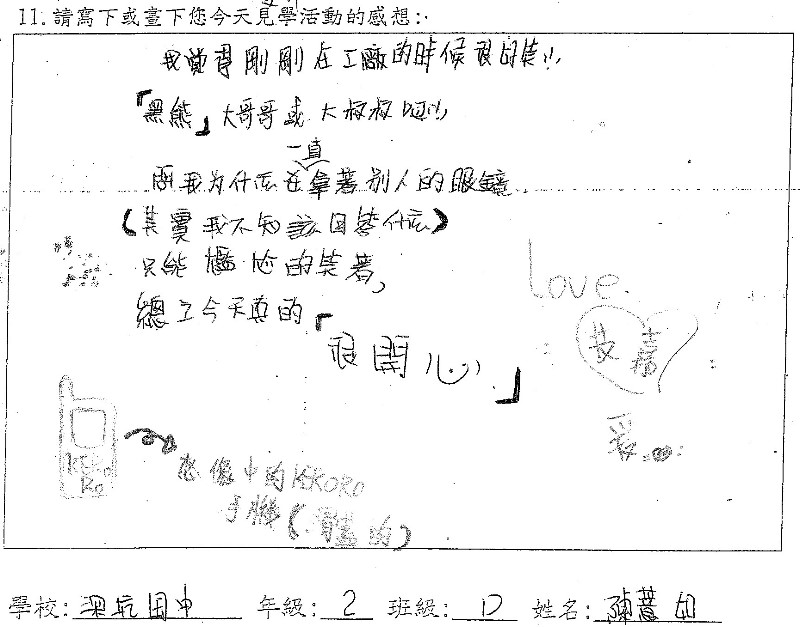 11. 請寫下或畫下您今天見學活動的感想:
我覺得剛剛在工廠的時候很的笑!!
「黑熊」大哥哥或大叔叔
一直
問我为什広在拿著別人的眼鏡
(其實我不知該回答什広)
只能尷尬的笑著,
總之今天真的「
很開心
」
Love.
愛
KEKO
Ro
想像中的KEKORO
手機(滑蓋的)
學校: 深坑国中 年級: 2 班級: D 姓名: 陳